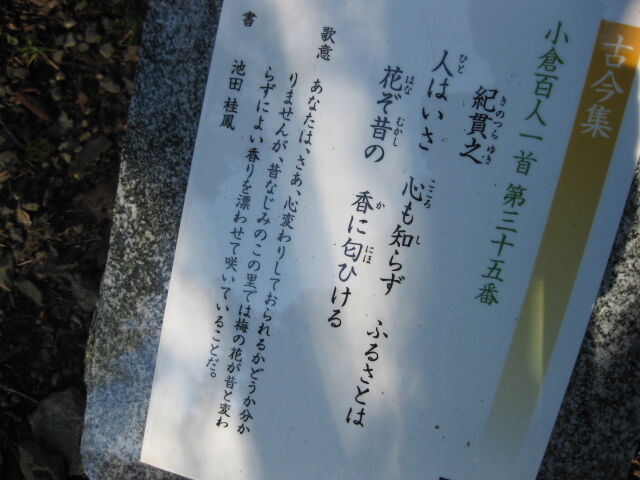 古今集
小倉百人一首 第三十五番
紀貫之
きのつらゆき
人はいさ 心も知らず ふるさとは
ひと こころ し
花ぞ昔の 香に匂ひける
はな むかし か にほ
歌意 あなたは、さあ、心変わりしておられるかどうか分か
りませんが、昔なじみのこの里では梅の花が昔と変わ
らずによい香りを漂わせて咲いていることだ。
書 池田 桂鳳